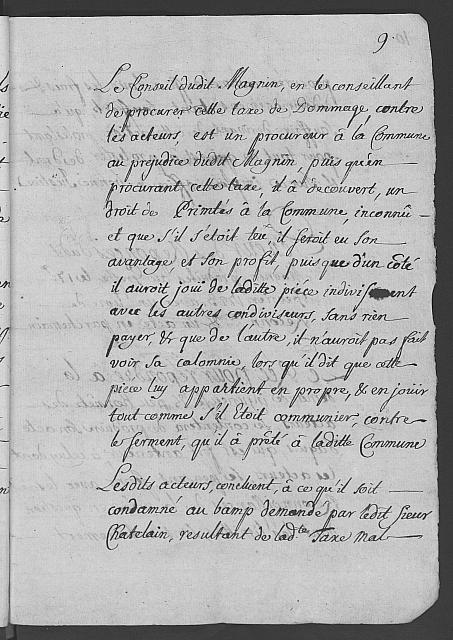 9.
Le Conseil dudit Magnin, en le conseillant
de procurer cette taxe de Dommage contre
les acteurs, est un procureur à la Commune
au préjudice dudit Magnin, puis qu'en
procurant cette taxe, il à découvert, un
droit de Primtés à la Commune, inconnû
et que s'il s'étoit teû, il seroit eu son
avantage, et son profit, puisque d'un côté
il auroit joui de laditte piéce indivisement
avec les autres condiviseurs, sans rien
payer, & que de l'autre, il n'auroit pas fait
voir sa calomnie, lors qu'il dit que cette
piéce luy appartient en propre, & en jouir
tout comme s'il étoit communier, contre
le serment, qu'il à prêté à laditte Commune
Lesdits acteurs, concluent, à ce qu'il soit
condamné au bamp demandé par ledit Sieur
Chatelain, resultant de ladte Taxe mal